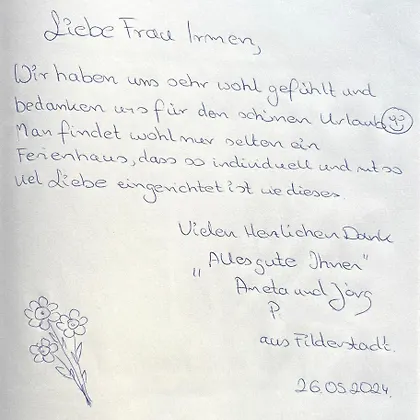 Liebe Frau Irmen,
Wir haben uns sehr wohl gefühlt und
bedanken uns für den schönen Urlaub
Man findet wohl nur selten ein
Ferienhaus, dass so individuell und mit so
viel Liebe eingerichtet ist wie dieses.
Vielen Herzlichen Dank
"Alles gute Ihnen"
Aneta und Jörg
P.
aus Filderstadt.
26.05.2024.